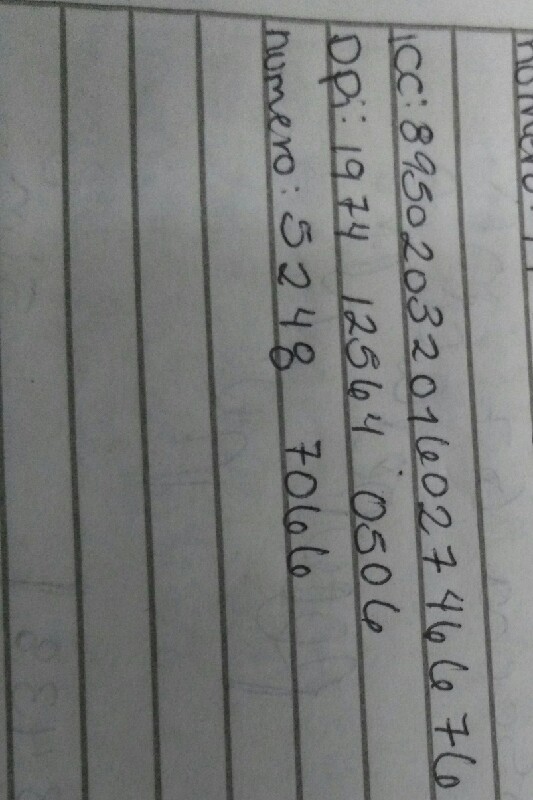 numero:
ICC: 8950203201602746676
DPi: 1974 12564 0506
numero: 5248 7066